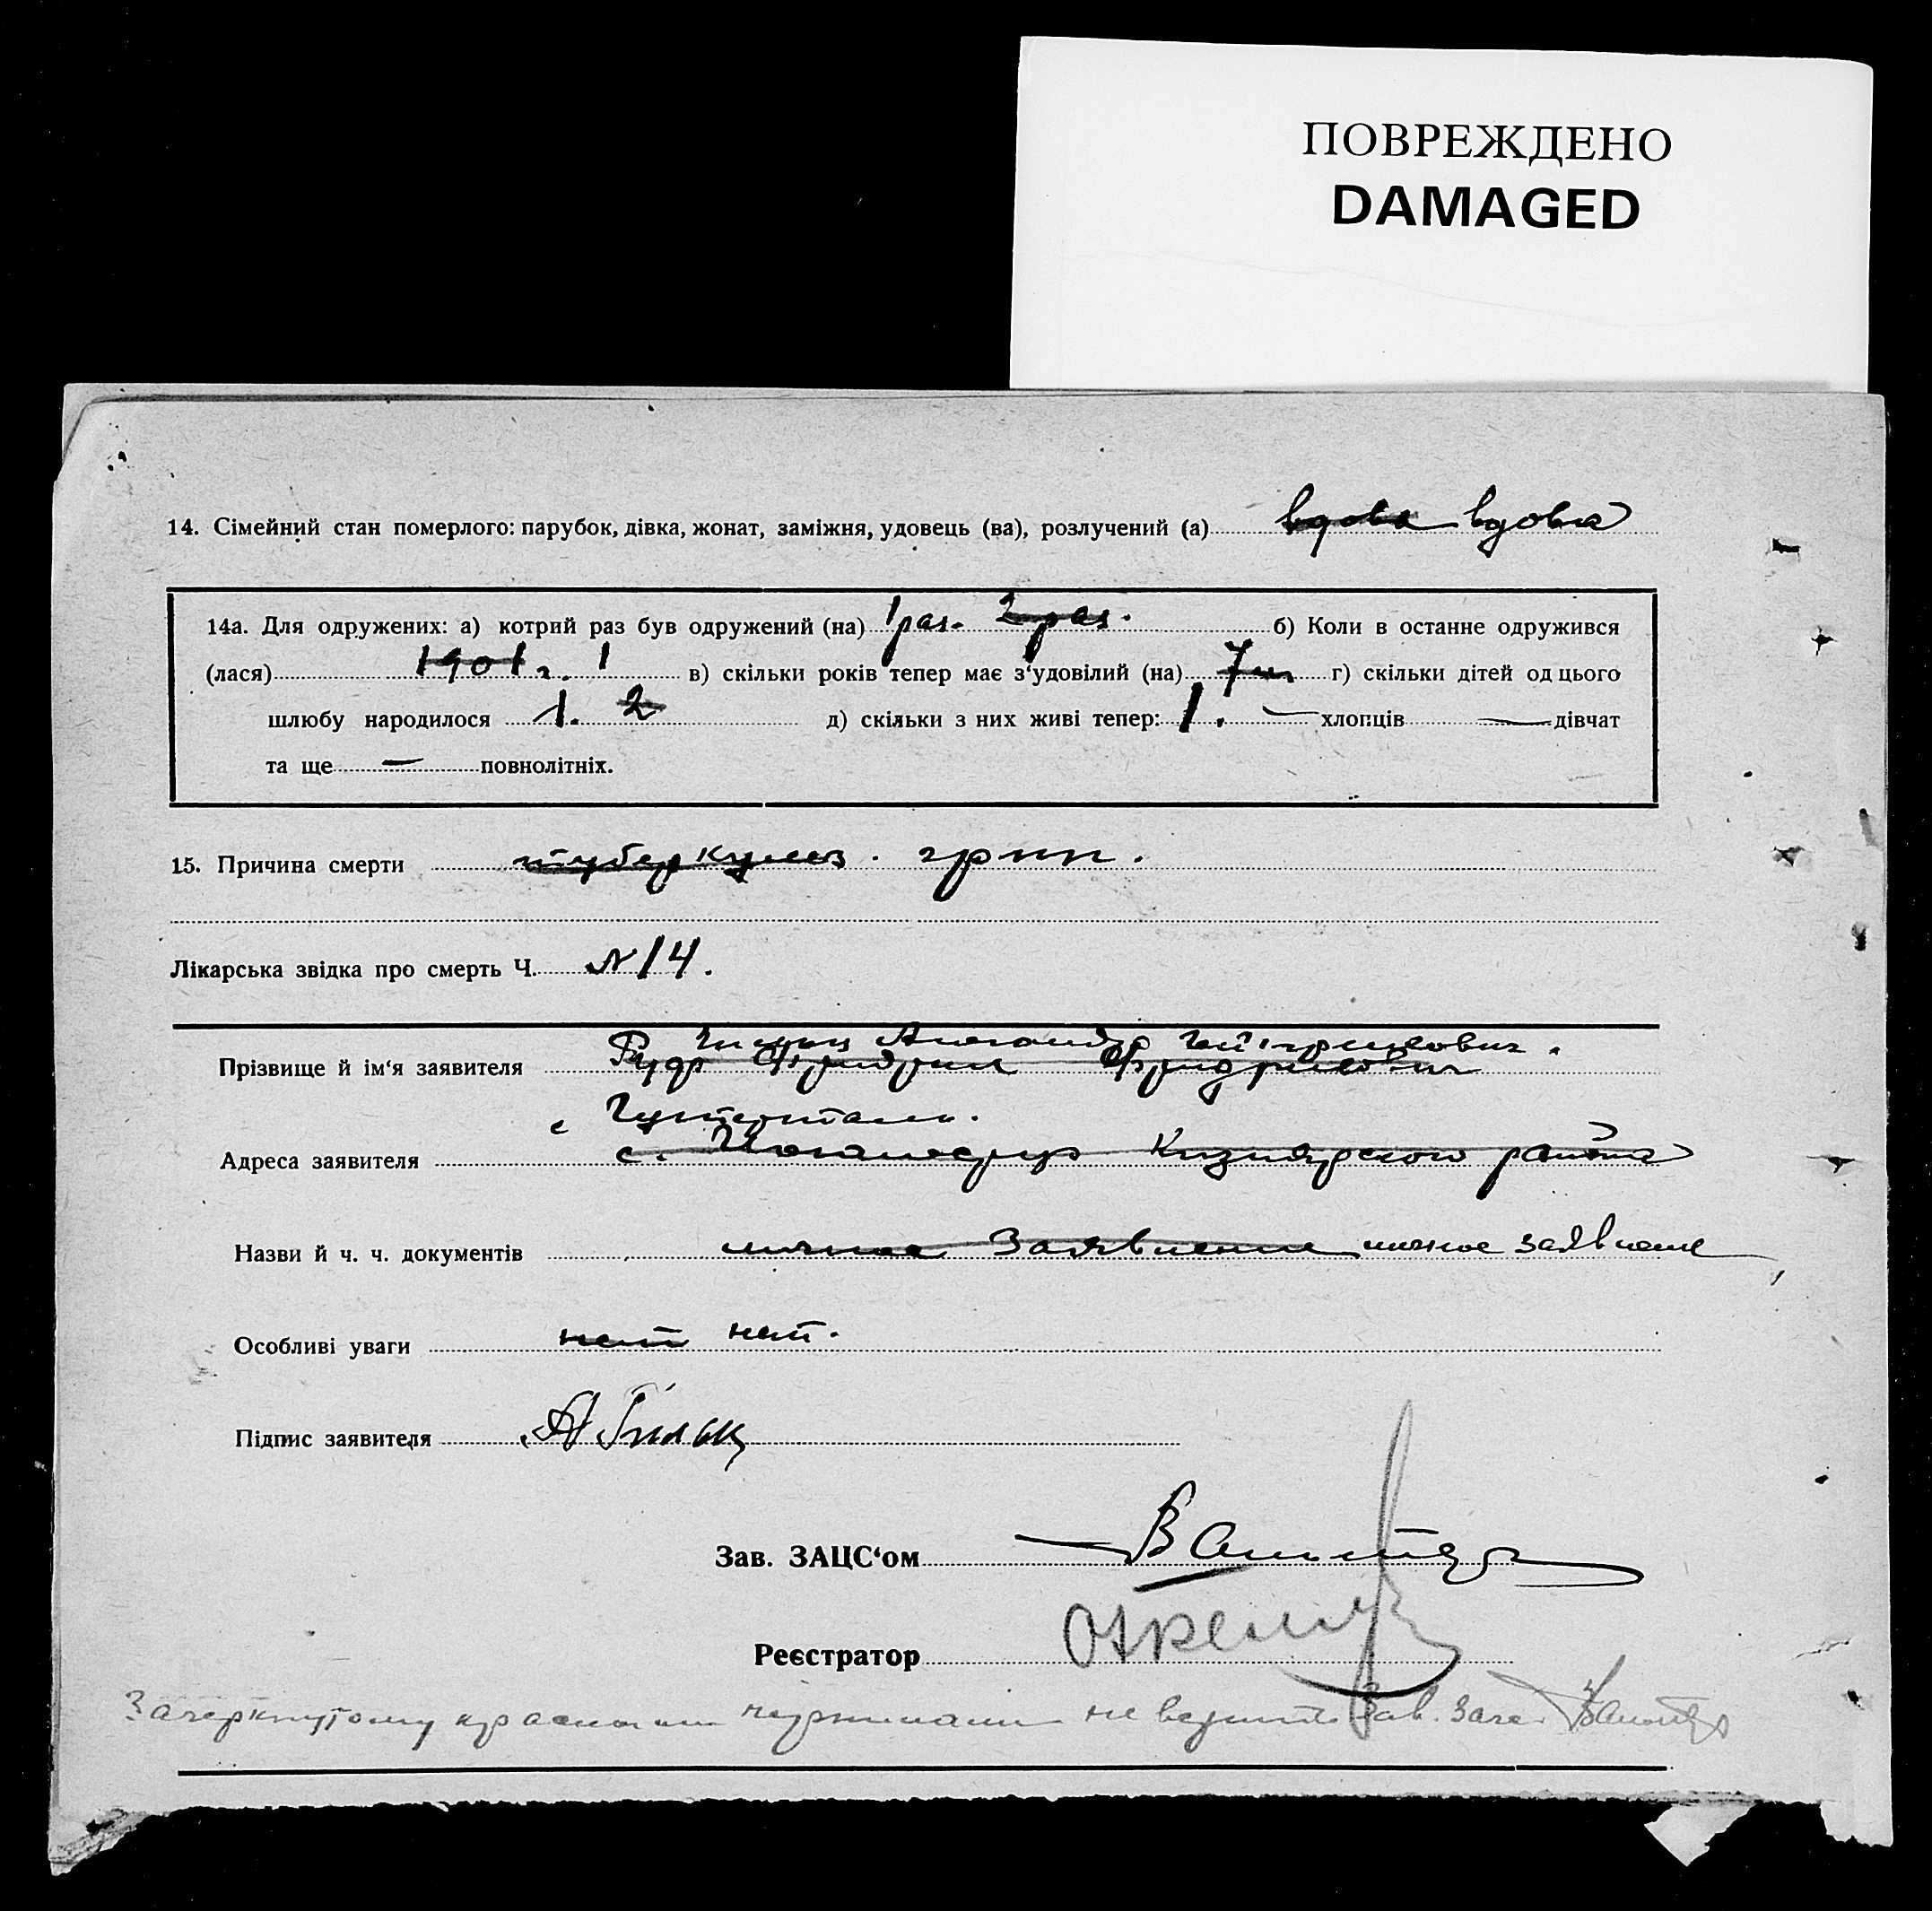 ПОВРЕЖДЕНО
DAMAGED
14. Сімейний стан померлого: парубок, дівка, жонат, заміжня, удовець (ва), розлучений (а) вдова вдова
14а. Для одружених: а) котрий раз був одружений (на) 1 раз. 2 раз. б) Коли в останне одружився
(лася) 1901 г. 1 в) скільки років тепер має з‘удовілий (на) 7 г) скільки дітей од цього
шлюбу народилося 1. 2 д) скільки з них живі тепер: 1. — хлопців — дівчат
та ще — повнолітніх.
15. Причина смерти туберкулез. грип.
Лікарська звідка про смерть Ч. N 14.
Прізвище й ім‘я заявителя
Фридрих Фридрихович
с
Адреса заявителя с. Кизиярского района
Назви й ч. ч. документів личное Заявление личное заявление
Особливі уваги нет нет.
Підпис заявителя А Гильц
Зав. ЗАЦС‘ом
Реєстратор
Зачеркнутому красными чернилами не верить Зав. Загс